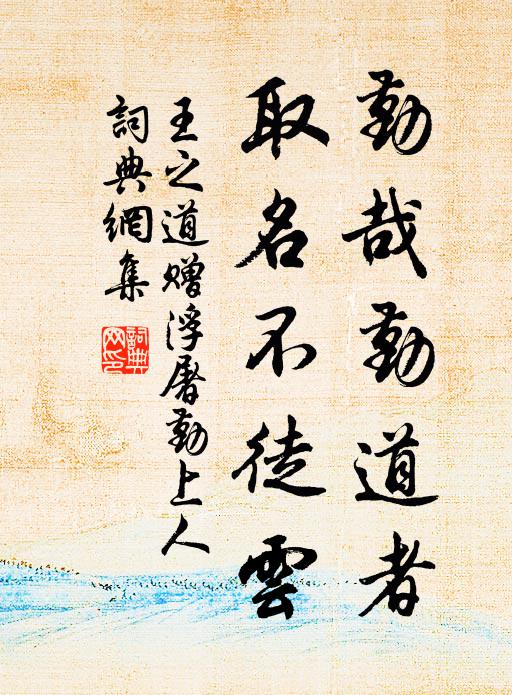 勤哉勤道者
取名不徒雲
王之道贈浮屠勤上人
詞典網集
詞典網印